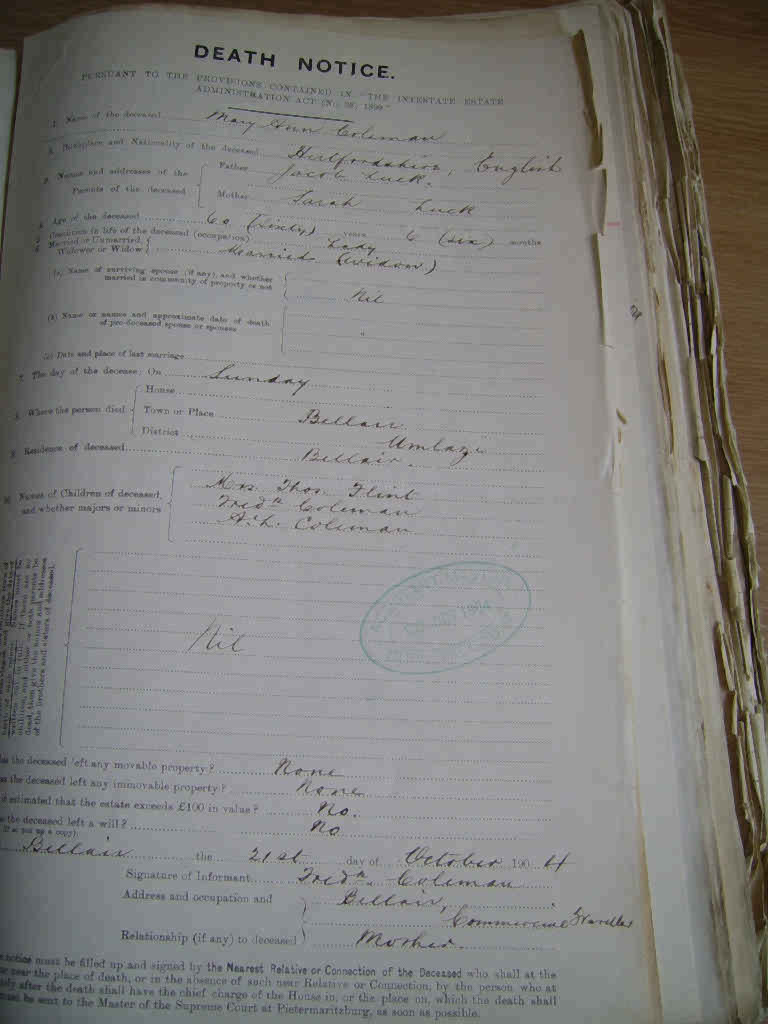 DEATH NOTICE.
PURSUANT TO THE PROVISIONS CONTAINED IN "THE INTESTATE ESTATE
ADMINISTRATION ACT (No. 38, 1899"
1. Name of the deceased Mary Ann Coleman
2. Birthplace and Nationality of the deceased Hertfordshire, English
3. Names and addresses of the Parents of the deceased
Father Jacob Luck.
Mother Sarah Luck
4. Age of the deceased 60 (sixty) years 6 (six) months
5. Condition in life of the deceased (occupation) Lady
6. Married or Unmarried, Widower or Widow Married (widow)
(a) Name of surviving spouse (if any), and whether
married in community of property or not
Nil
(b) Name or names and approximate date of death
of pre-deceased spouse or spouses
"
(c) Date and place of last marriage
7. The day of the decease: On Sunday
8. Where the person died
House
Town or Place Bellair
District Umlazi
9. Residence of deceased Bellair.
10. Names of Children of deceased,
and whether majors or minors
Mrs. Thos. Flint
Fredk Coleman
A.L. Coleman
children, and either or both parents be
dead, then give the names and addresses
of the brothers and sisters of deceased.
Nil
1904
the deceased left any movable property? None
the deceased left any immovable property? None
estimated that the estate exceeds £100 in value? No.
the deceased left a will? No
Bellair the 21st day of October 1904
Signature of Informant Fredk Coleman
Address and occupation and Bellair,
Commercial Traveller
Relationship (if any) to deceased Mother.
notice must be filled up and signed by the Nearest Relative or Connection of the Deceased who shall at the
near the place of death, or in the absence of such near Relative or Connection, by the person who at
after the death shall have the chief charge of the House in, or the place on, which the death shall
must be sent to the Master of the Supreme Court at Pietermaritzburg, as soon as possible.